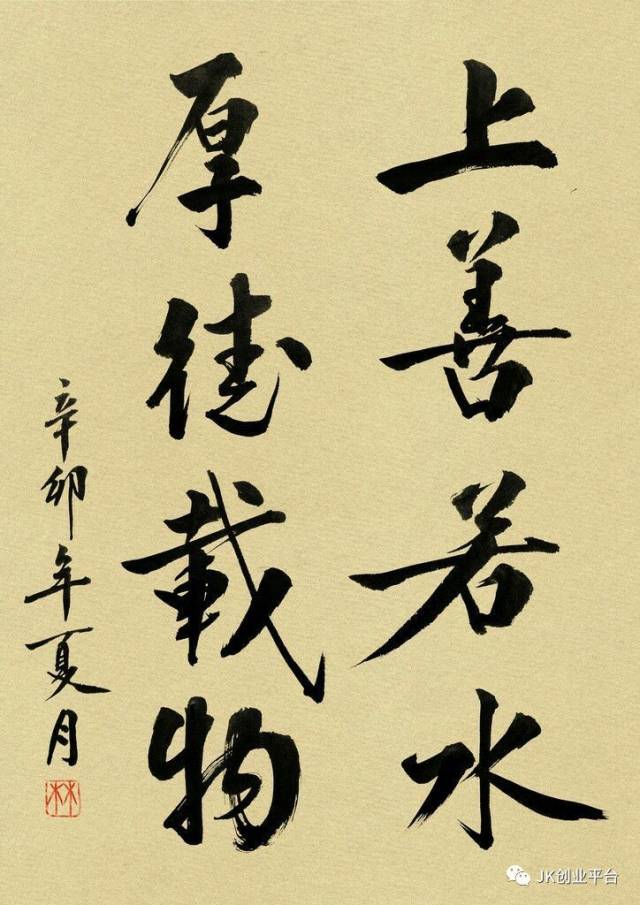 上善若水
厚德載物
辛卯年夏月
林
JK创业平台